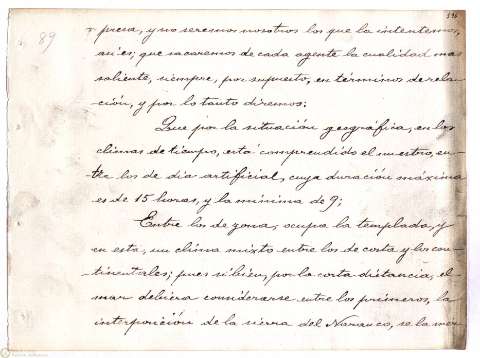 89
presa, y no seremos nosotros los que la intentemos,
así es; que sacaremos de cada agente la cualidad mas
saliente, siempre, por supuesto, en términos de rela-
ción, y por lo tanto diremos:
Que por la situación geográfica, en los
climas de tiempo, está comprendido el nuestro, en-
tre los de dia artificial, cuya duración máxima
es de 15 horas, y la mínima de 9;
Entre los de zona, ocupa la templada, y
en esta, un clima mixto entre los de costa y los con-
tinentales; pues si bien, por la corta distancia, el
mar debiera considerarse entre los primeros, la
interposición de la sierra del Naranco, se la mer